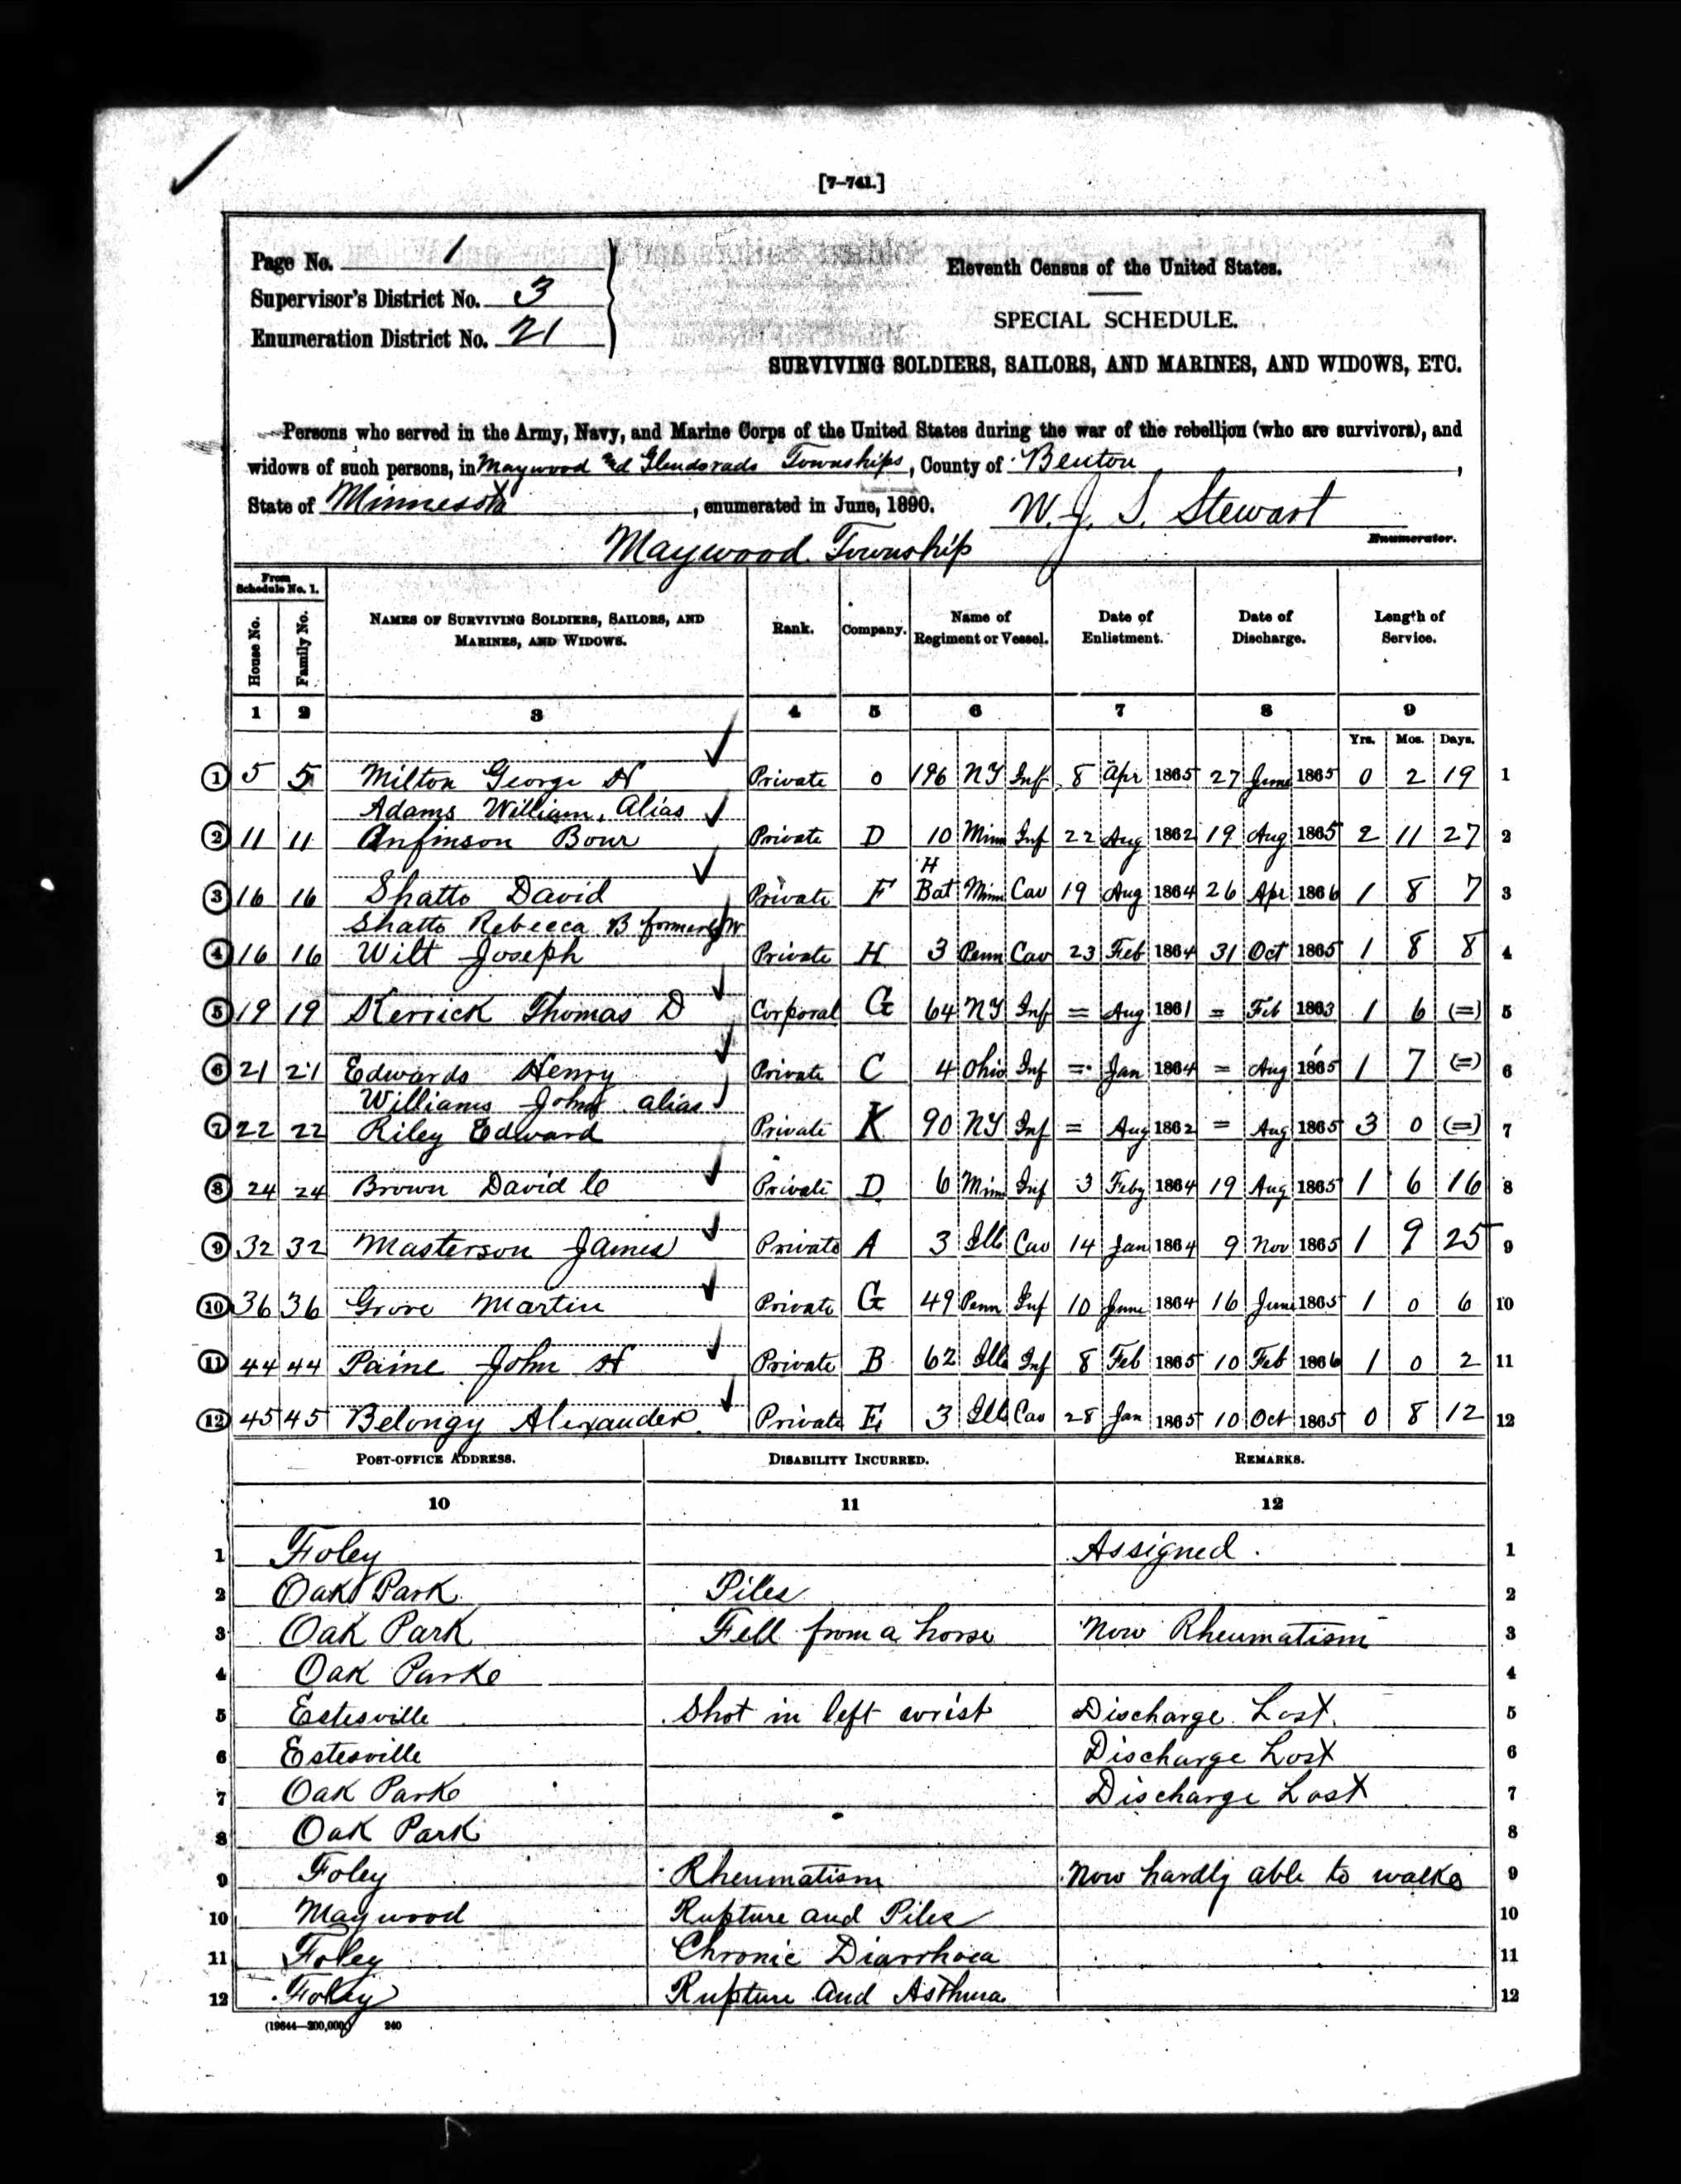 [7-741.]
Page No. 1
Supervisor's District No. 3
Enumeration District No. 21
Eleventh Census of the United States.
SPECIAL SCHEDULE.
SURVIVING SOLDIERS, SAILORS, AND MARINES, AND WIDOWS, ETC.
Persons who served in the Army, Navy, and Marine Corps of the United States during the war of the rebellion (who are survivors), and
widows of such persons, in Maywood and Glendorado Townships, County of Benton,
State of Minnesota, enumerated in June, 1890. W. J. S. Stewart
Enumerator.
Maywood Township
From Schedule No. 1.
House No. Family No. NAMES OF SURVIVING SOLDIERS, SAILORS, AND MARINES, AND WIDOWS. Rank. Company. Name of Regiment or Vessel. Date of Enlistment. Date of Discharge. Length of Service.
1 2 3 4 5 6 7 8 9
Yrs. Mos. Days.
1 5 5 Milton George H Private 196 NY Inf 8 Apr 1865 27 June 1865 0 2 19 1
Adams William, Alias
2 11 11 Anfinson Bour Private D 10 Minn Inf 22 Aug 1862 19 Aug 1865 2 11 27 2
H
3 16 16 Shatto David Private F Bat Minn Cav 19 Aug 1864 26 Apr 1866 1 8 7 3
Shatto Rebecca B formerly W
4 16 16 Wilt Joseph Private H 3 Penn Cav 23 Feb 1864 31 Oct 1865 1 8 8 4
5 19 19 Kerrick Thomas D Corporal G 64 NY Inf = Aug 1861 = Feb 1863 1 6 (=) 5
6 21 21 Edwards Henry Private C 4 Ohio Inf = Jan 1864 = Aug 1865 1 7 (=) 6
Williams John alias
7 22 22 Riley Edward Private K 90 NY Inf = Aug 1862 = Aug 1865 3 0 (=) 7
8 24 24 Brown David C Private D 6 Minn Inf 3 Feby 1864 19 Aug 1865 1 6 16 8
9 32 32 Masterson James Private A 3 Ill Cav 14 Jan 1864 9 Nov 1865 1 9 25 9
10 36 36 Grove Martin Private G 49 Penn Inf 10 June 1864 16 June 1865 1 0 6 10
11 44 44 Paine John H Private B 62 Ills Inf 8 Feb 1865 10 Feb 1866 1 0 2 11
12 45 45 Belongy Alexander Private E 3 Ill Cav 28 Jan 1865 10 Oct 1865 0 8 12 12
POST-OFFICE ADDRESS. DISABILITY INCURRED. REMARKS.
10 11 12
1 Foley Assigned. 1
2 Oak Park Piles 2
3 Oak Park Fell from a horse Now Rheumatism 3
4 Oak Park 4
5 Estesville Shot in left wrist Discharge Lost. 5
6 Estesville Discharge Lost 6
7 Oak Park Discharge Lost 7
8 Oak Park 8
9 Foley Rheumatism Now hardly able to walk 9
10 Maywood Rupture and Piles 10
11 Foley Chronic Diarrhoea 11
12 Foley Rupture and Asthma 12
(19644—200,000) 240